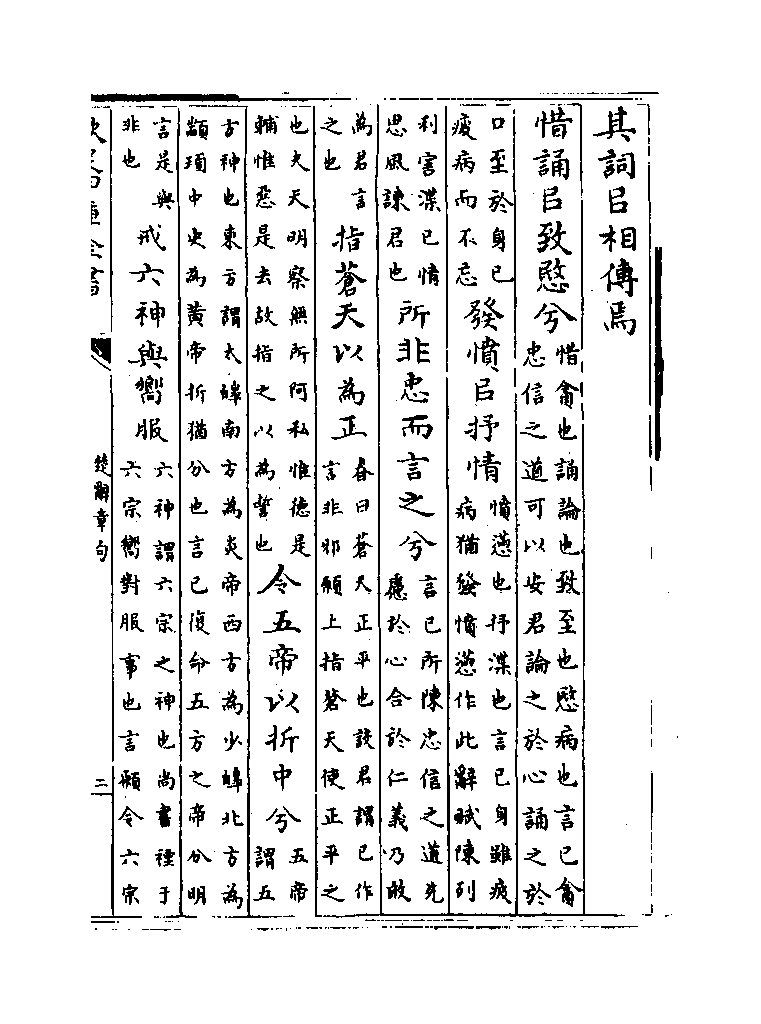 其詞㠯相傳焉
惜誦㠯致愍兮
惜貪也誦論也致至也愍病也言己貪
忠信之道可以安君論之於心誦之於
口至於身已
疲病而不忘
發憤㠯抒情
憤懣也抒渫也言己身雖疲
病猶發憤懣作此辭賦陳列
利害渫己情
思風諫君也
所非忠而言之兮
言己所陳忠信之道先
慮於心合於仁義乃敢
為君言
之也
指蒼天以為正
春曰蒼天正平也設君謂己作
言非邪願上指蒼天使正平之
也夫天明察無所阿私惟德是
輔惟惡是去故指之以為誓也
令五帝以折中兮
五帝
謂五
方神也東方謂太皥南方為炎帝西方為少皥北方為
顓頊中央為黃帝折猶分也言己復命五方之帝分明
言是與
非也
戒六神與嚮服
六神謂六宗之神也尚書禋于
六宗嚮對服事也言願令六宗
楚辭章句
二